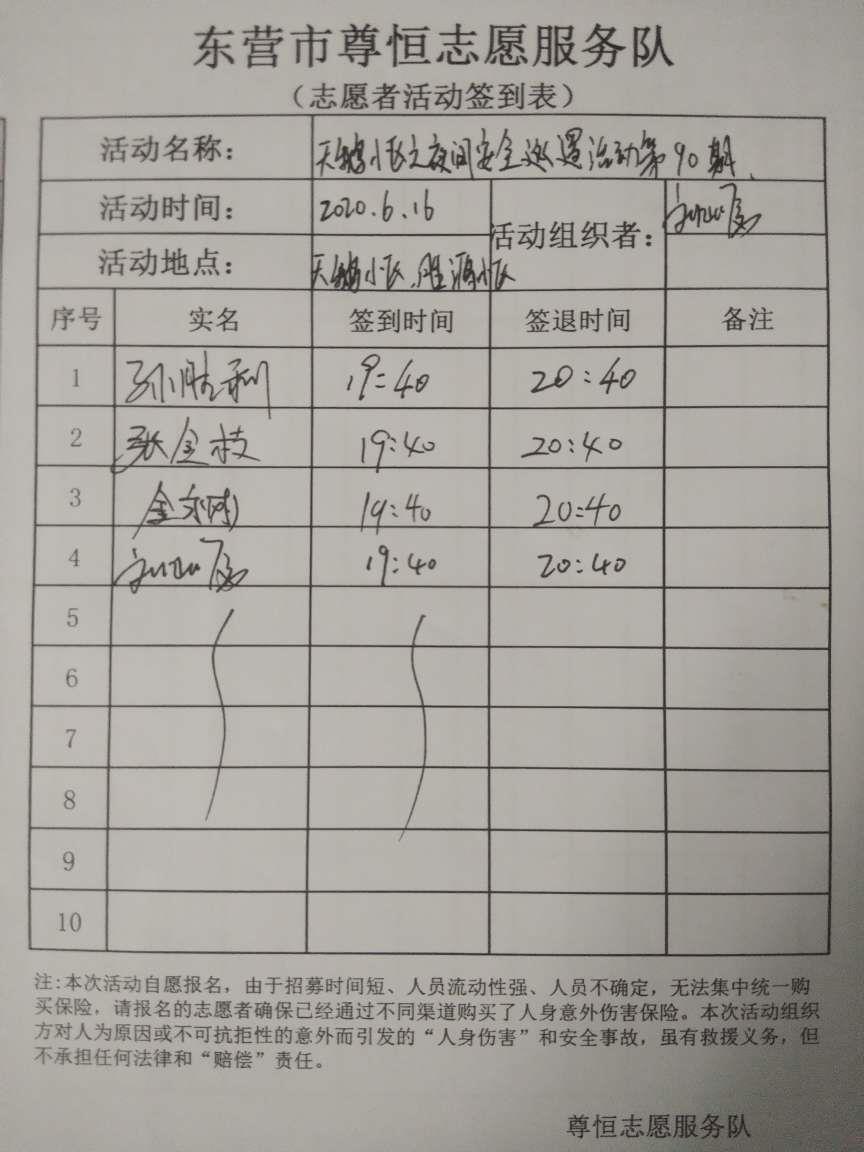 东营市尊恒志愿服务队
（志愿者活动签到表）
活动名称： 天鹅小区夜间安全巡逻活动第90期
活动时间： 2020.6.16 活动组织者：
活动地点： 天鹅小区、胜源小区
序号 实名 签到时间 签退时间 备注
1 孙胜利 19:40 20:40
2 张金枝 19:40 20:40
3 金 19:40 20:40
4 19:40 20:40
5
6
7
8
9
10
注:本次活动自愿报名，由于招募时间短、人员流动性强、人员不确定，无法集中统一购
买保险，请报名的志愿者确保已经通过不同渠道购买了人身意外伤害保险。本次活动组织
方对人为原因或不可抗拒性的意外而引发的“人身伤害”和安全事故，虽有救援义务，但
不承担任何法律和“赔偿”责任。
尊恒志愿服务队